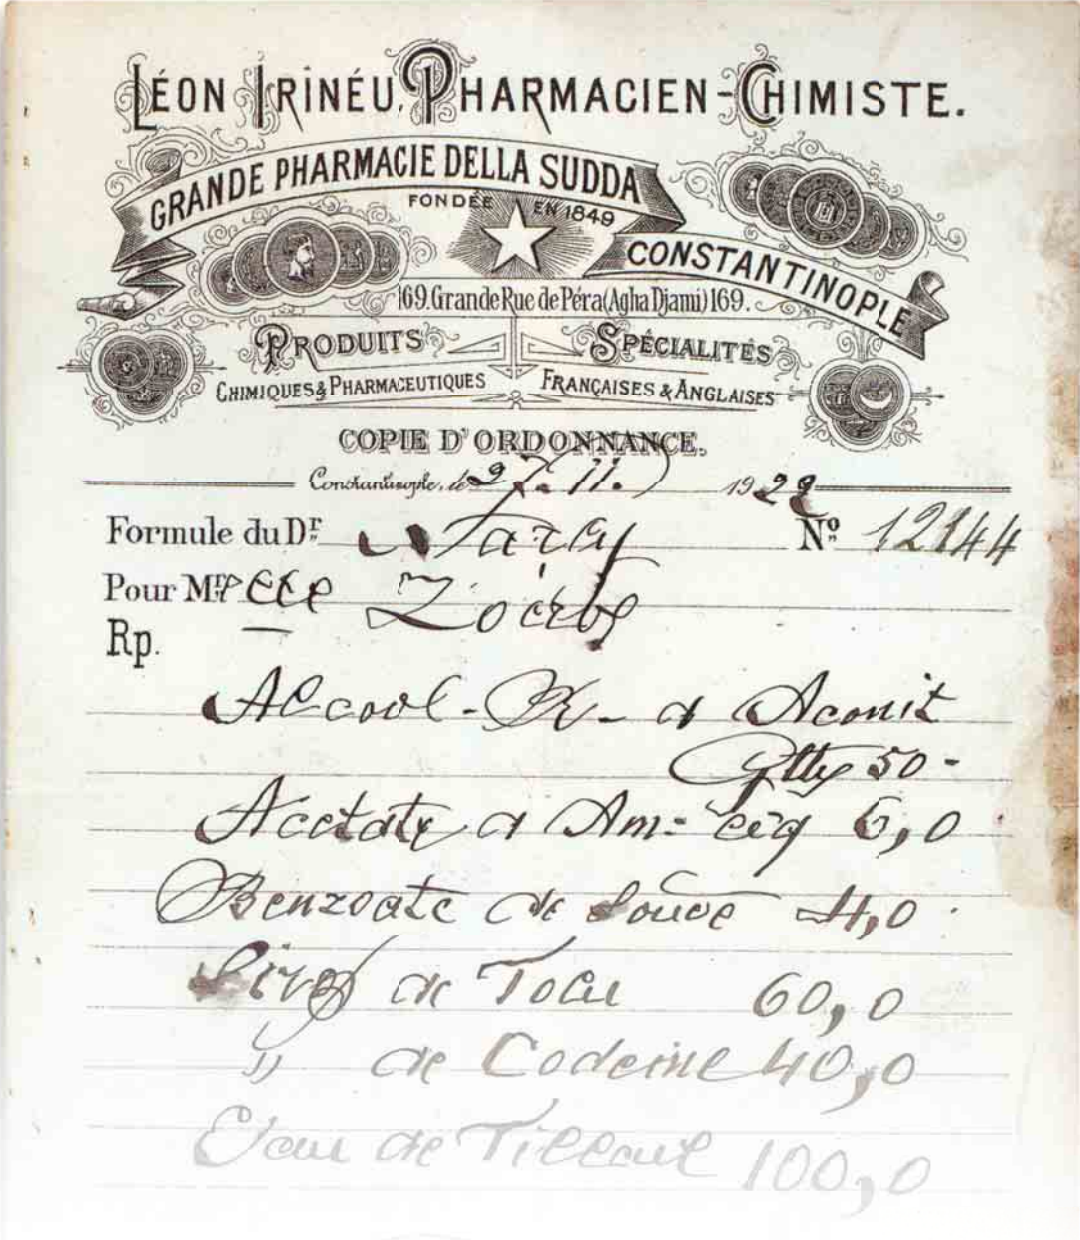 LÉON IRINÉU, PHARMACIEN-CHIMISTE.
GRANDE PHARMACIE DELLA SUDDA
FONDÉE EN 1849
CONSTANTINOPLE
169. Grande Rue de Péra (Agha Djami) 169.
PRODUITS SPÉCIALITÉS
CHIMIQUES & PHARMACEUTIQUES FRANÇAISES & ANGLAISES
COPIE D'ORDONNANCE.
Constantinople, le 11. 1922
Formule du Dr. No. 12144
Pour Mr
Rp.
Alcool - d Aconit
Gtty 50 -
Acetate d Am: 6,0
Benzoate de Soude 4,0
Sirop de Tolu 60,0
" de Codeine 40,0
Eau de Tilleul 100,0